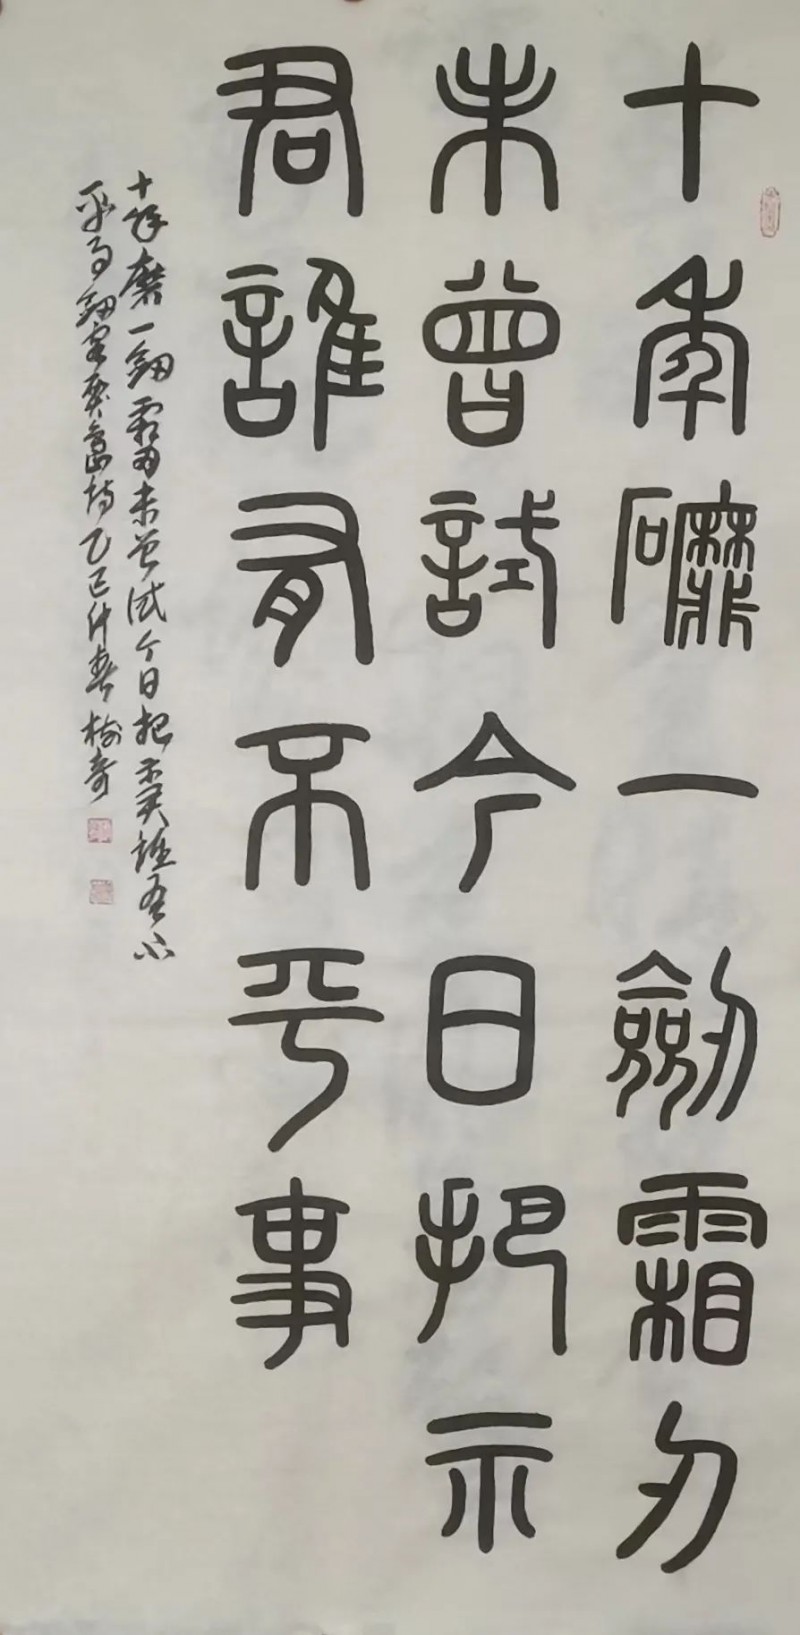 十年磨一劍霜刃
未曾試今日把示
君誰有不平事
十年磨一劍霜刃未曾試今日把示君誰有不
平事劍客賈島詩乙巳仲春奇